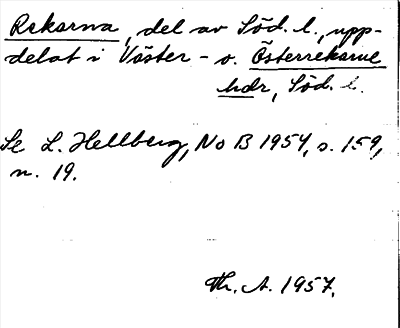 Rekarna, del av Söd. l., upp-
delat i Väster- o. Österrekarne
hdr, Söd. l.
Se L. Hellberg, NoB 1954, s. 159,
n. 19.
Th. A. 1957.